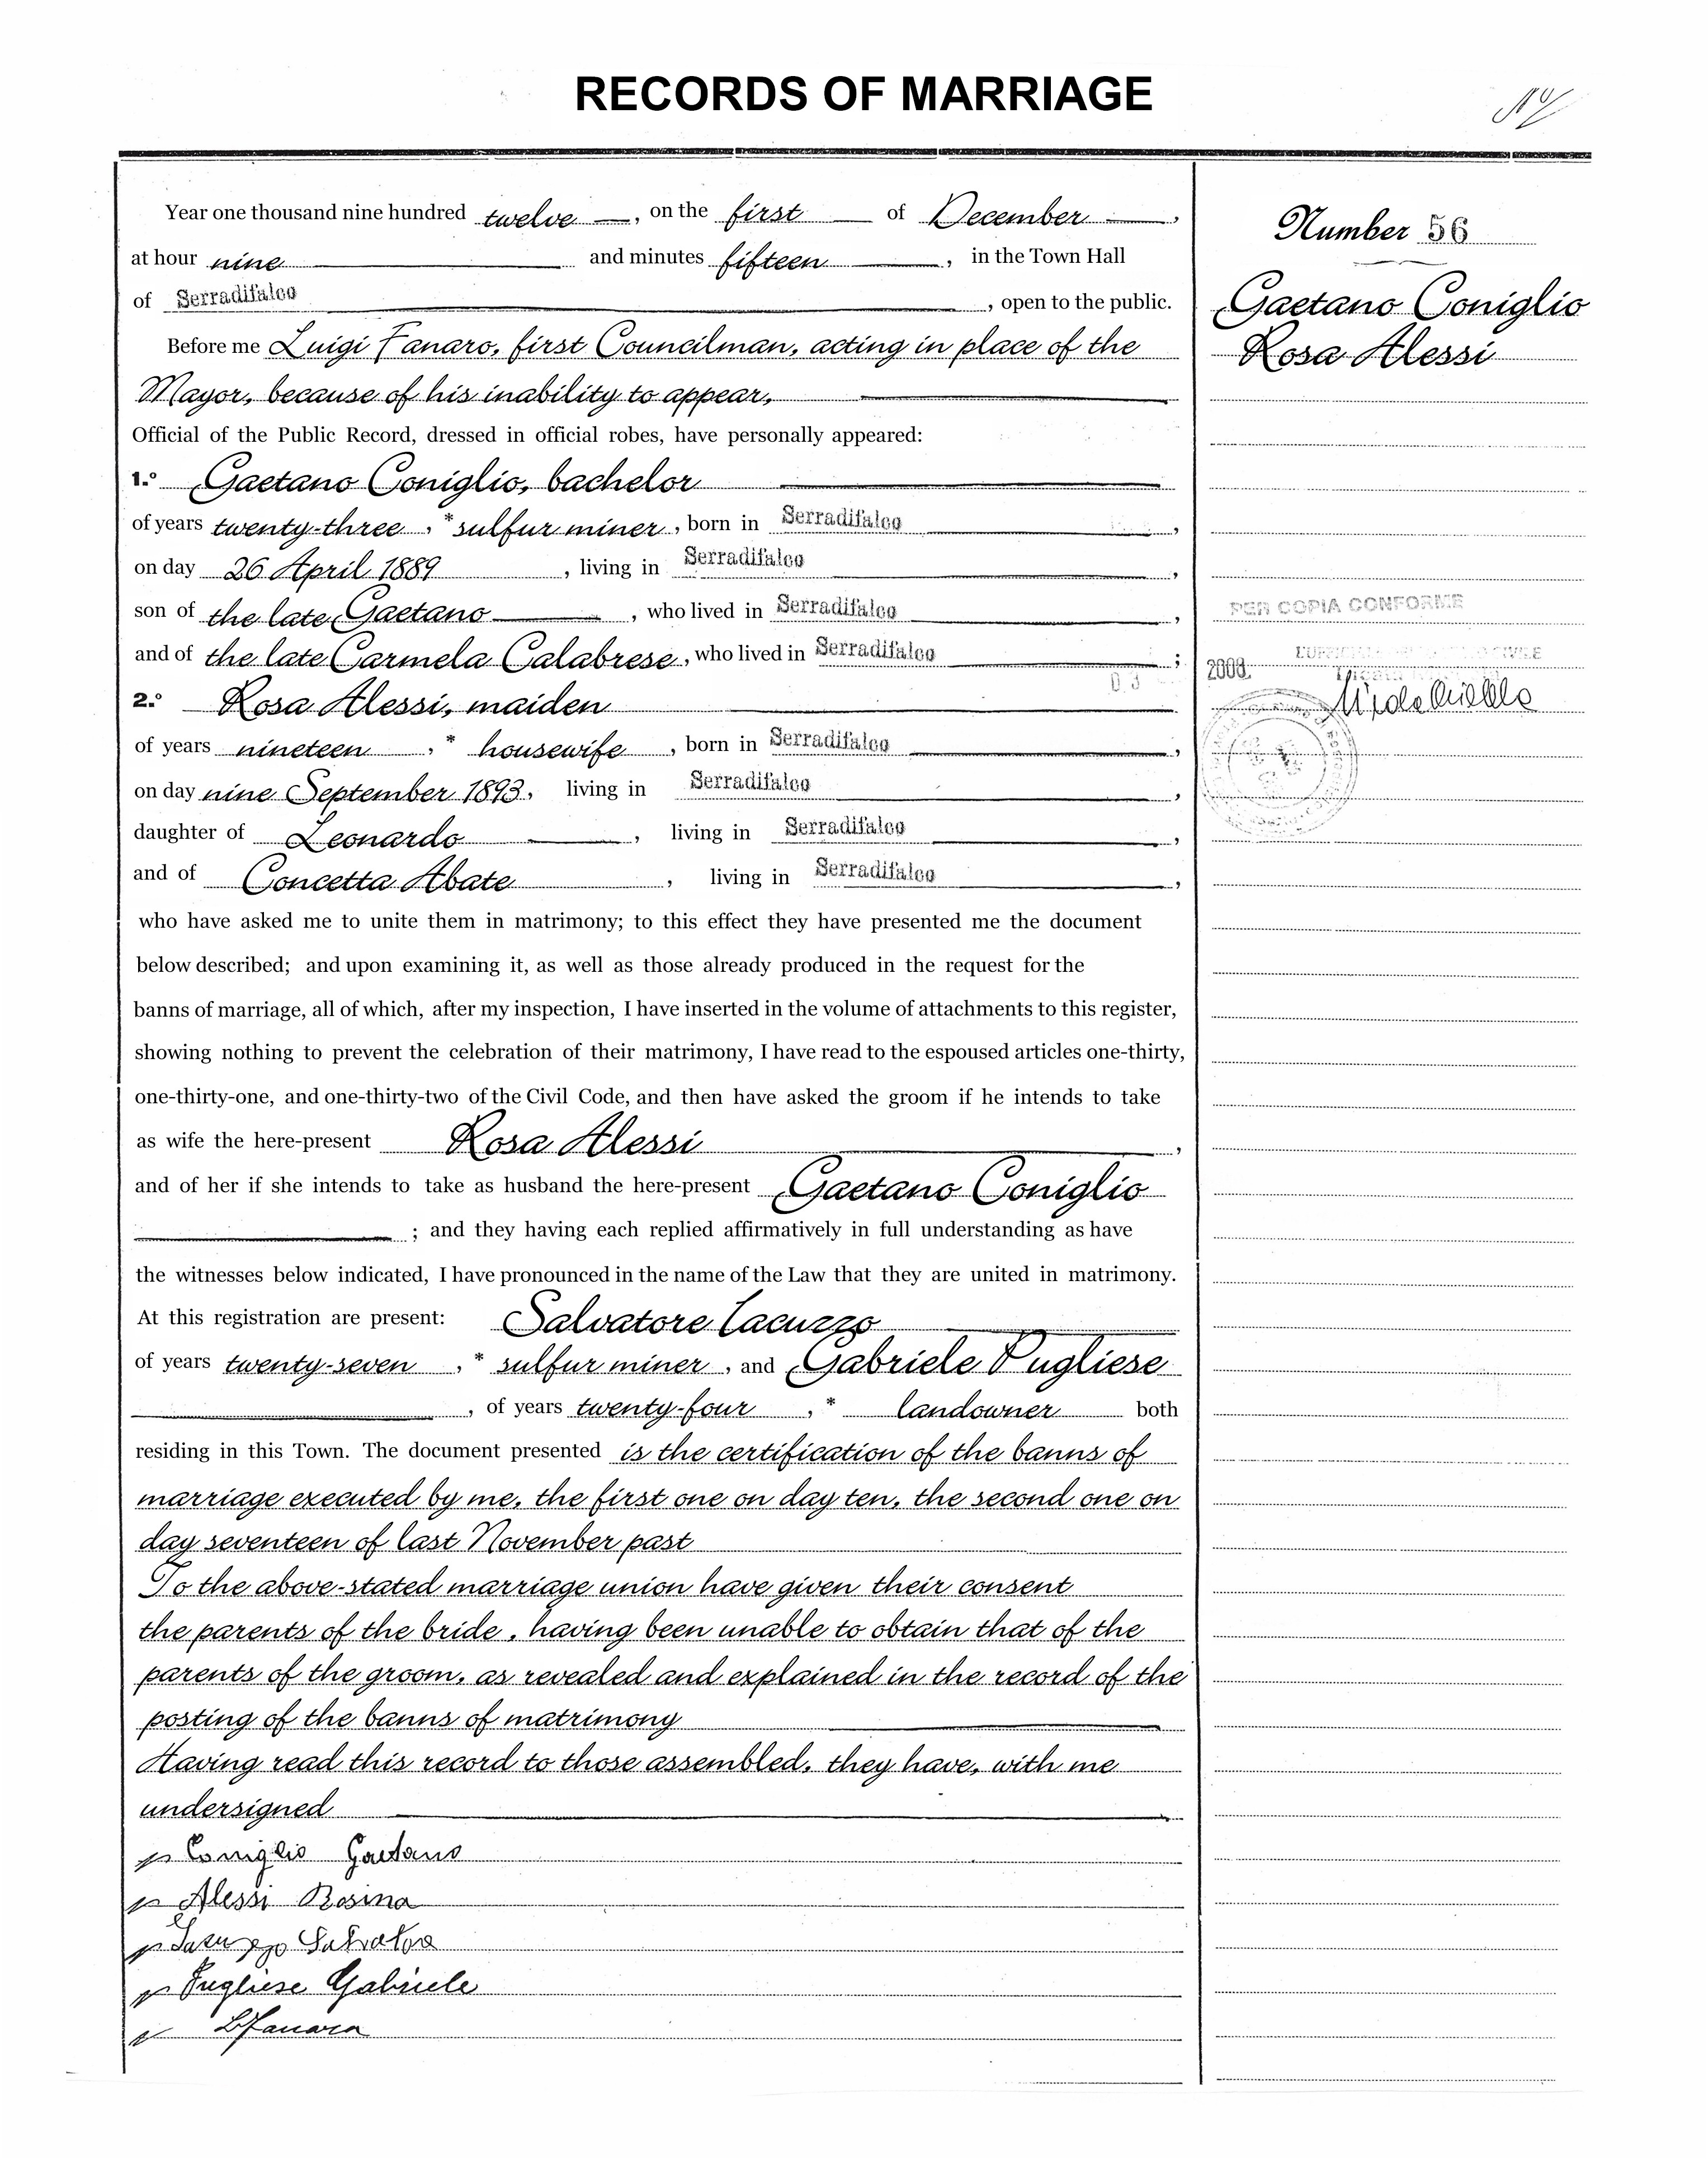 RECORDS OF MARRIAGE
Year one thousand nine hundred twelve, on the first of December,
at hour nine and minutes fifteen, in the Town Hall
of Serradifalco, open to the public.
Before me Luigi Fanaro, first Councilman, acting in place of the
Mayor, because of his inability to appear,
Official of the Public Record, dressed in official robes, have personally appeared:
1.º Gaetano Coniglio, bachelor
of years twenty-three, * sulfur miner, born in Serradifalco,
on day 26 April 1889, living in Serradifalco,
son of the late Gaetano, who lived in Serradifalco,
and of the late Carmela Calabrese, who lived in Serradifalco;
2.º Rosa Alessi, maiden
of years nineteen, * housewife, born in Serradifalco,
on day nine September 1893, living in Serradifalco,
daughter of Leonardo, living in Serradifalco,
and of Concetta Abate, living in Serradifalco,
who have asked me to unite them in matrimony; to this effect they have presented me the document
below described; and upon examining it, as well as those already produced in the request for the
banns of marriage, all of which, after my inspection, I have inserted in the volume of attachments to this register,
showing nothing to prevent the celebration of their matrimony, I have read to the espoused articles one-thirty,
one-thirty-one, and one-thirty-two of the Civil Code, and then have asked the groom if he intends to take
as wife the here-present Rosa Alessi,
and of her if she intends to take as husband the here-present Gaetano Coniglio
; and they having each replied affirmatively in full understanding as have
the witnesses below indicated, I have pronounced in the name of the Law that they are united in matrimony.
At this registration are present: Salvatore Iacuzzo
of years twenty-seven, * sulfur miner, and Gabriele Pugliese
, of years twenty-four, * landowner both
residing in this Town. The document presented is the certification of the banns of
marriage executed by me, the first one on day ten, the second one on
day seventeen of last November past
To the above-stated marriage union have given their consent
the parents of the bride, having been unable to obtain that of the
parents of the groom, as revealed and explained in the record of the
posting of the banns of matrimony
Having read this record to those assembled, they have, with me
undersigned
Coniglio Gaetano
Alessi Rosina
Iacuzzo Salvatore
Pugliese Gabriele
L Fanara
Number 56
Gaetano Coniglio
Rosa Alessi
PER COPIA CONFORME